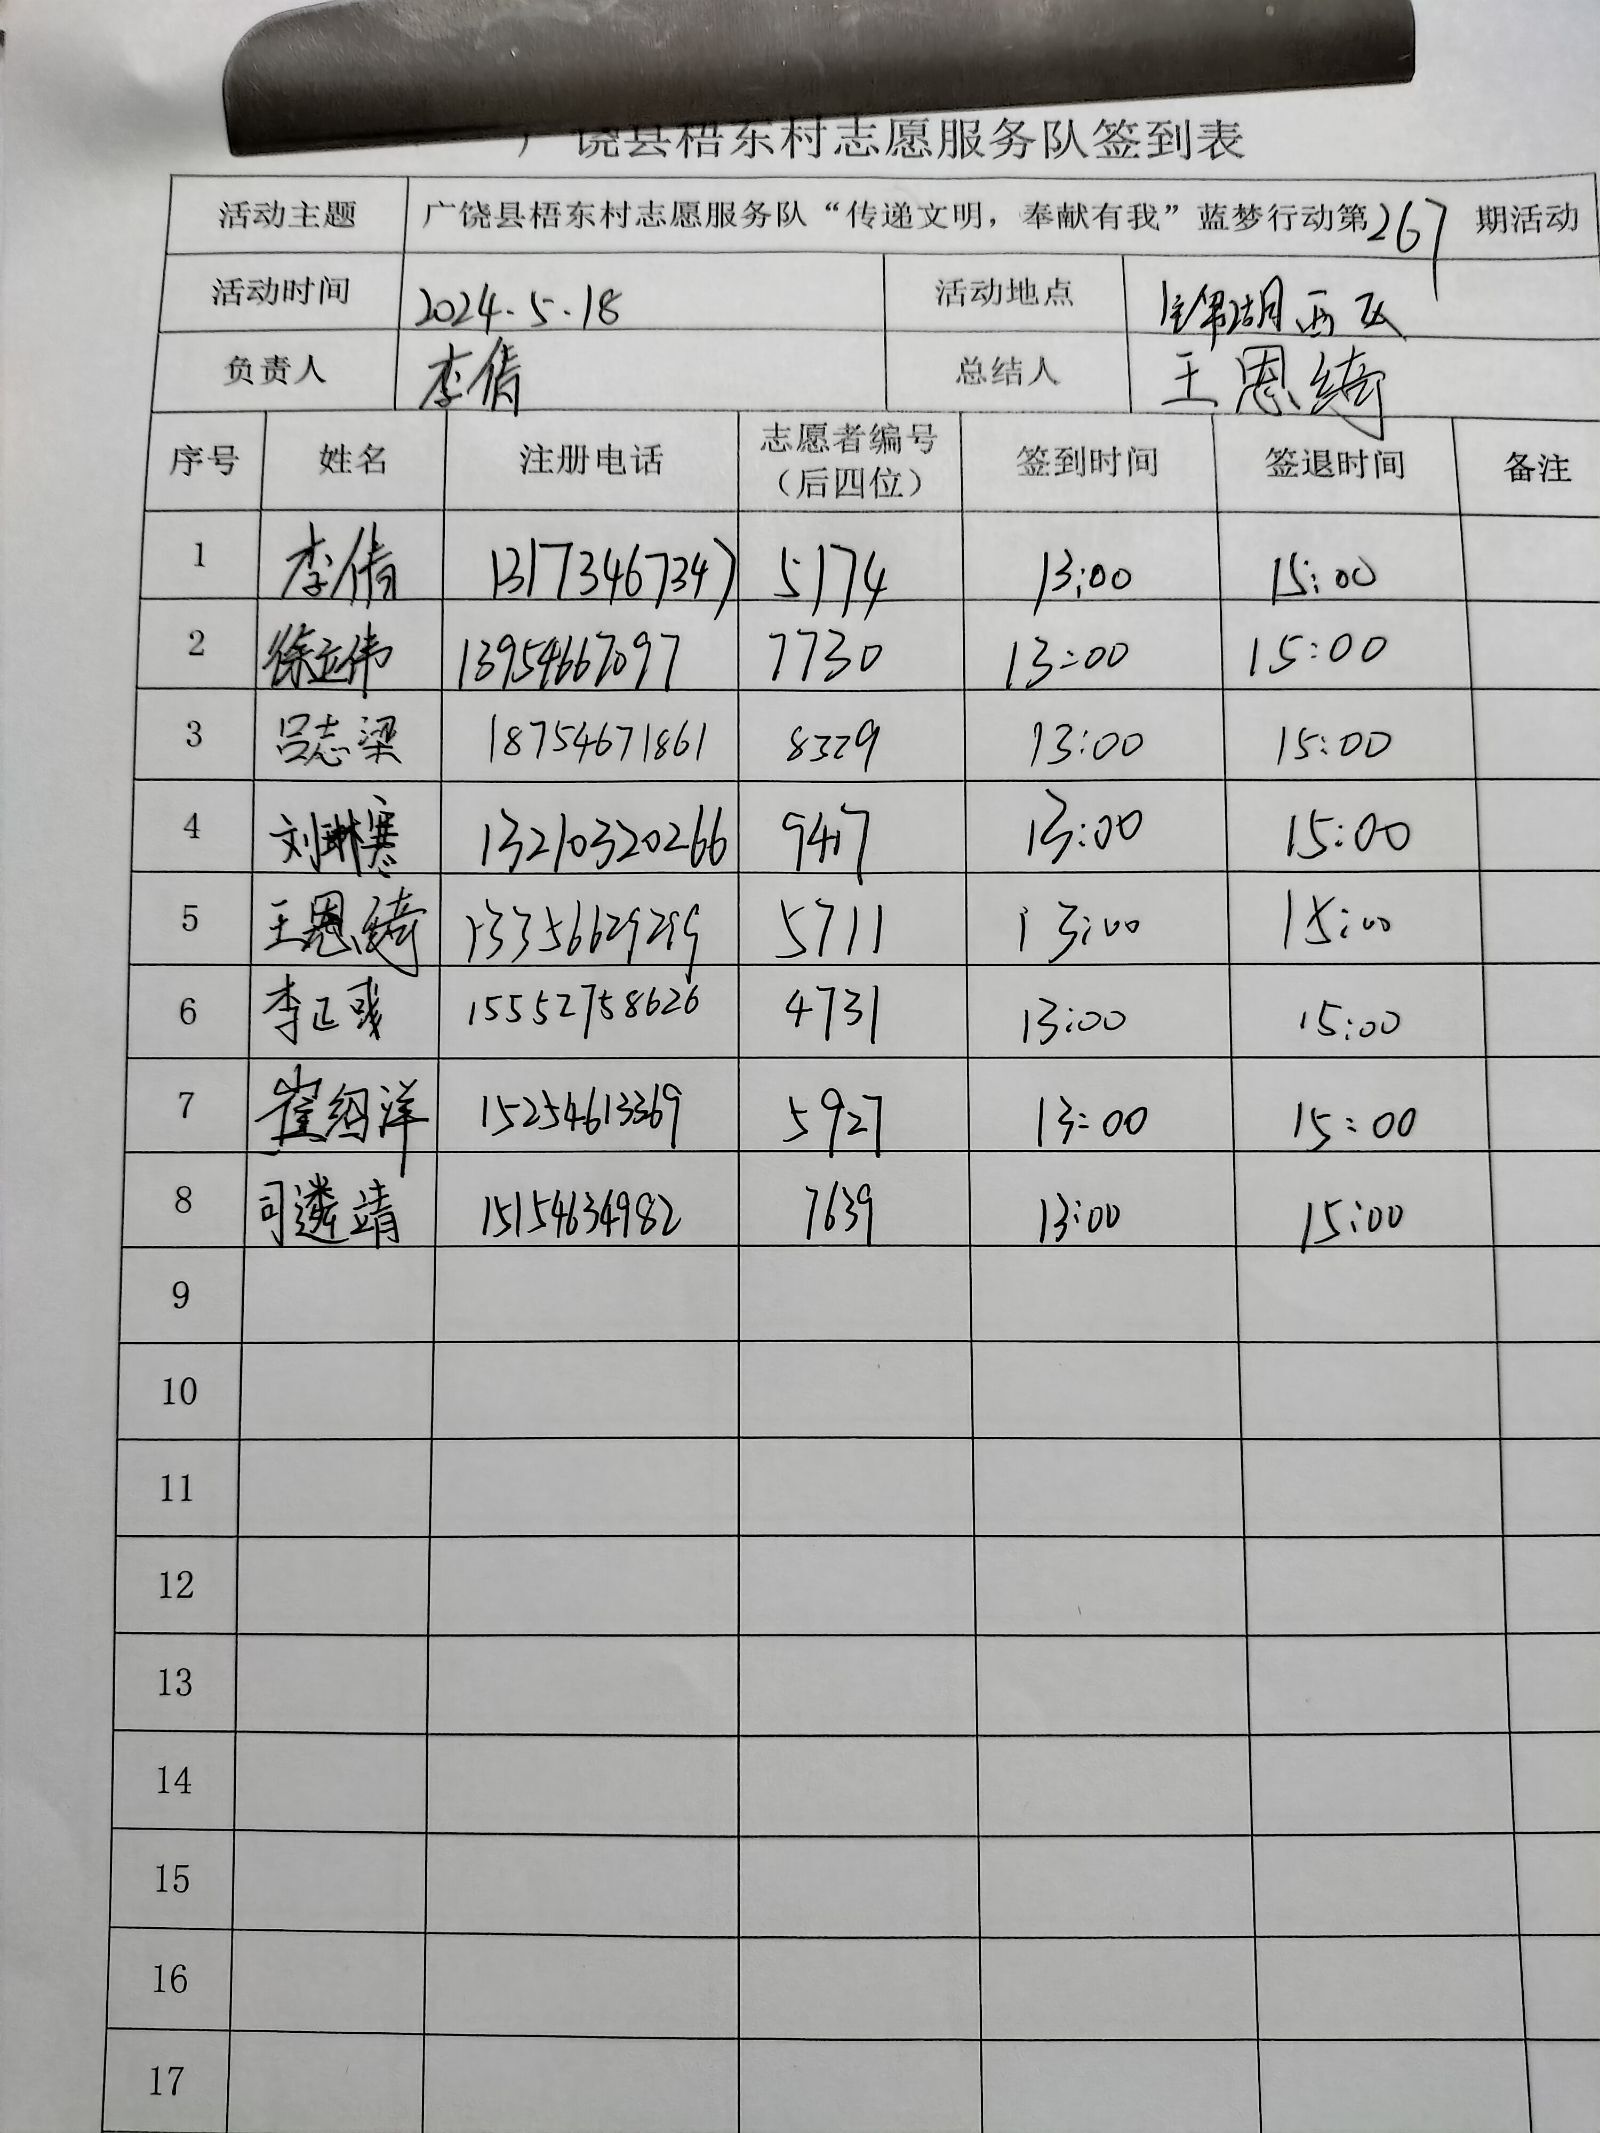 广饶县梧东村志愿服务队签到表
活动主题 广饶县梧东村志愿服务队“传递文明，奉献有我”蓝梦行动第267期活动
活动时间 2024.5.18 活动地点 湖西
负责人 李倩 总结人 王恩绮
序号 姓名 注册电话 志愿者编号（后四位） 签到时间 签退时间 备注
1 李倩 13173467347 5174 13:00 15:00
2 徐立伟 13954667097 7730 13:00 15:00
3 吕志梁 18754671861 8329 13:00 15:00
4 刘琳骞 13210320266 9417 13:00 15:00
5 王恩绮 13356629299 5711 13:00 15:00
6 李正彧 15552758626 4731 13:00 15:00
7 崔绍洋 15254613369 5927 13:00 15:00
8 司遴靖 15154634982 7639 13:00 15:00
9
10
11
12
13
14
15
16
17